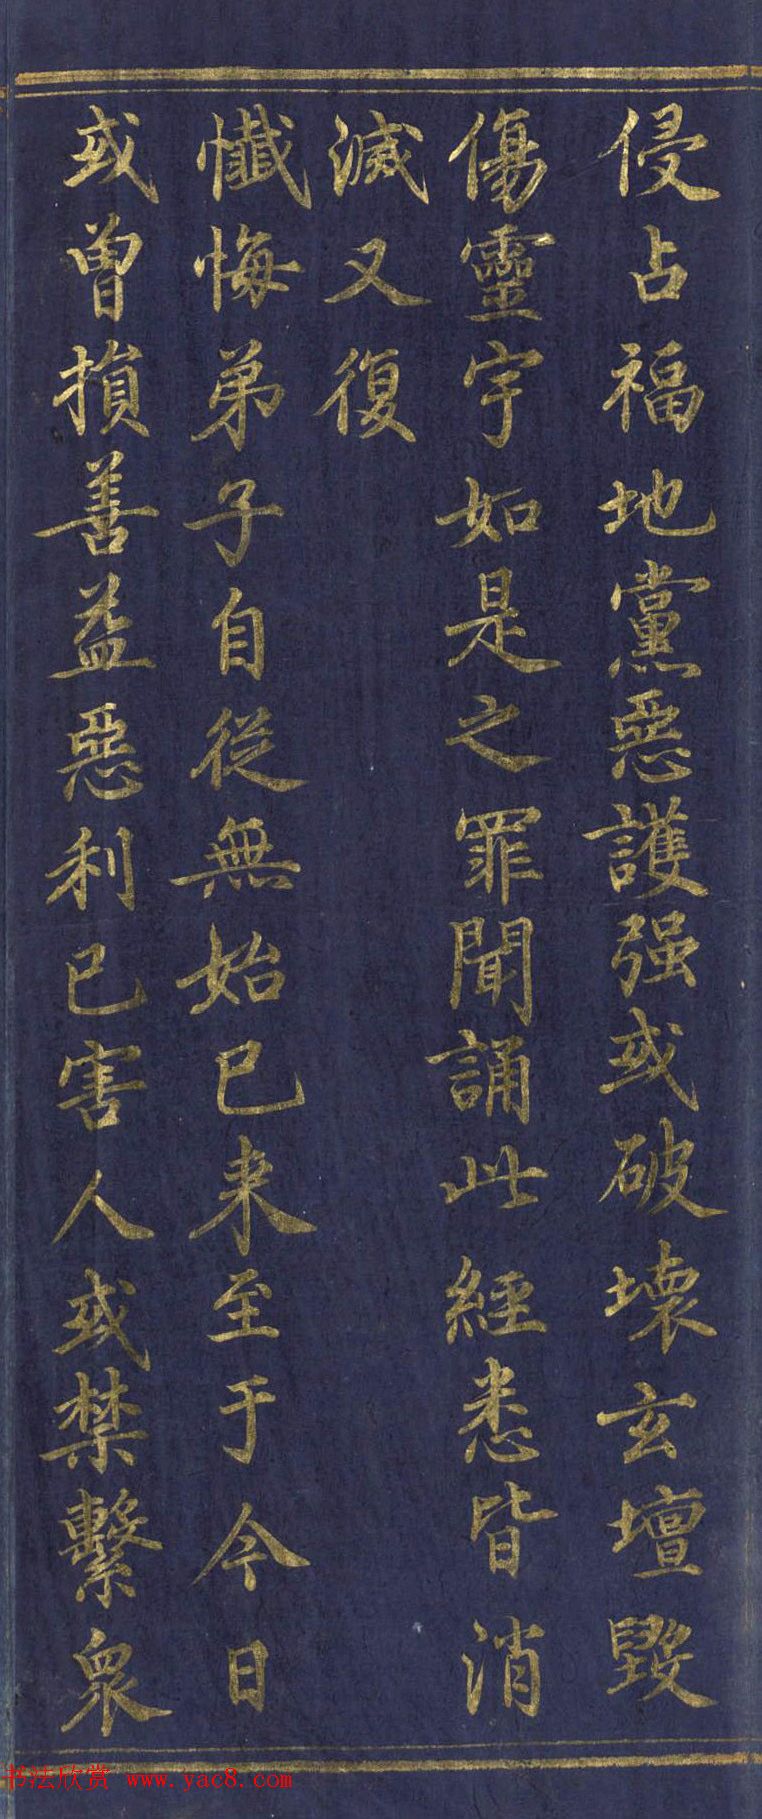 侵占福地黨惡護强或破壞玄壇毀
傷靈宇如是之罪聞誦此經悉皆消
滅又復
懺悔弟子自從無始已来至于今日
或曾損善益惡利已害人或禁繫衆
书法欣赏 www.yac8.com